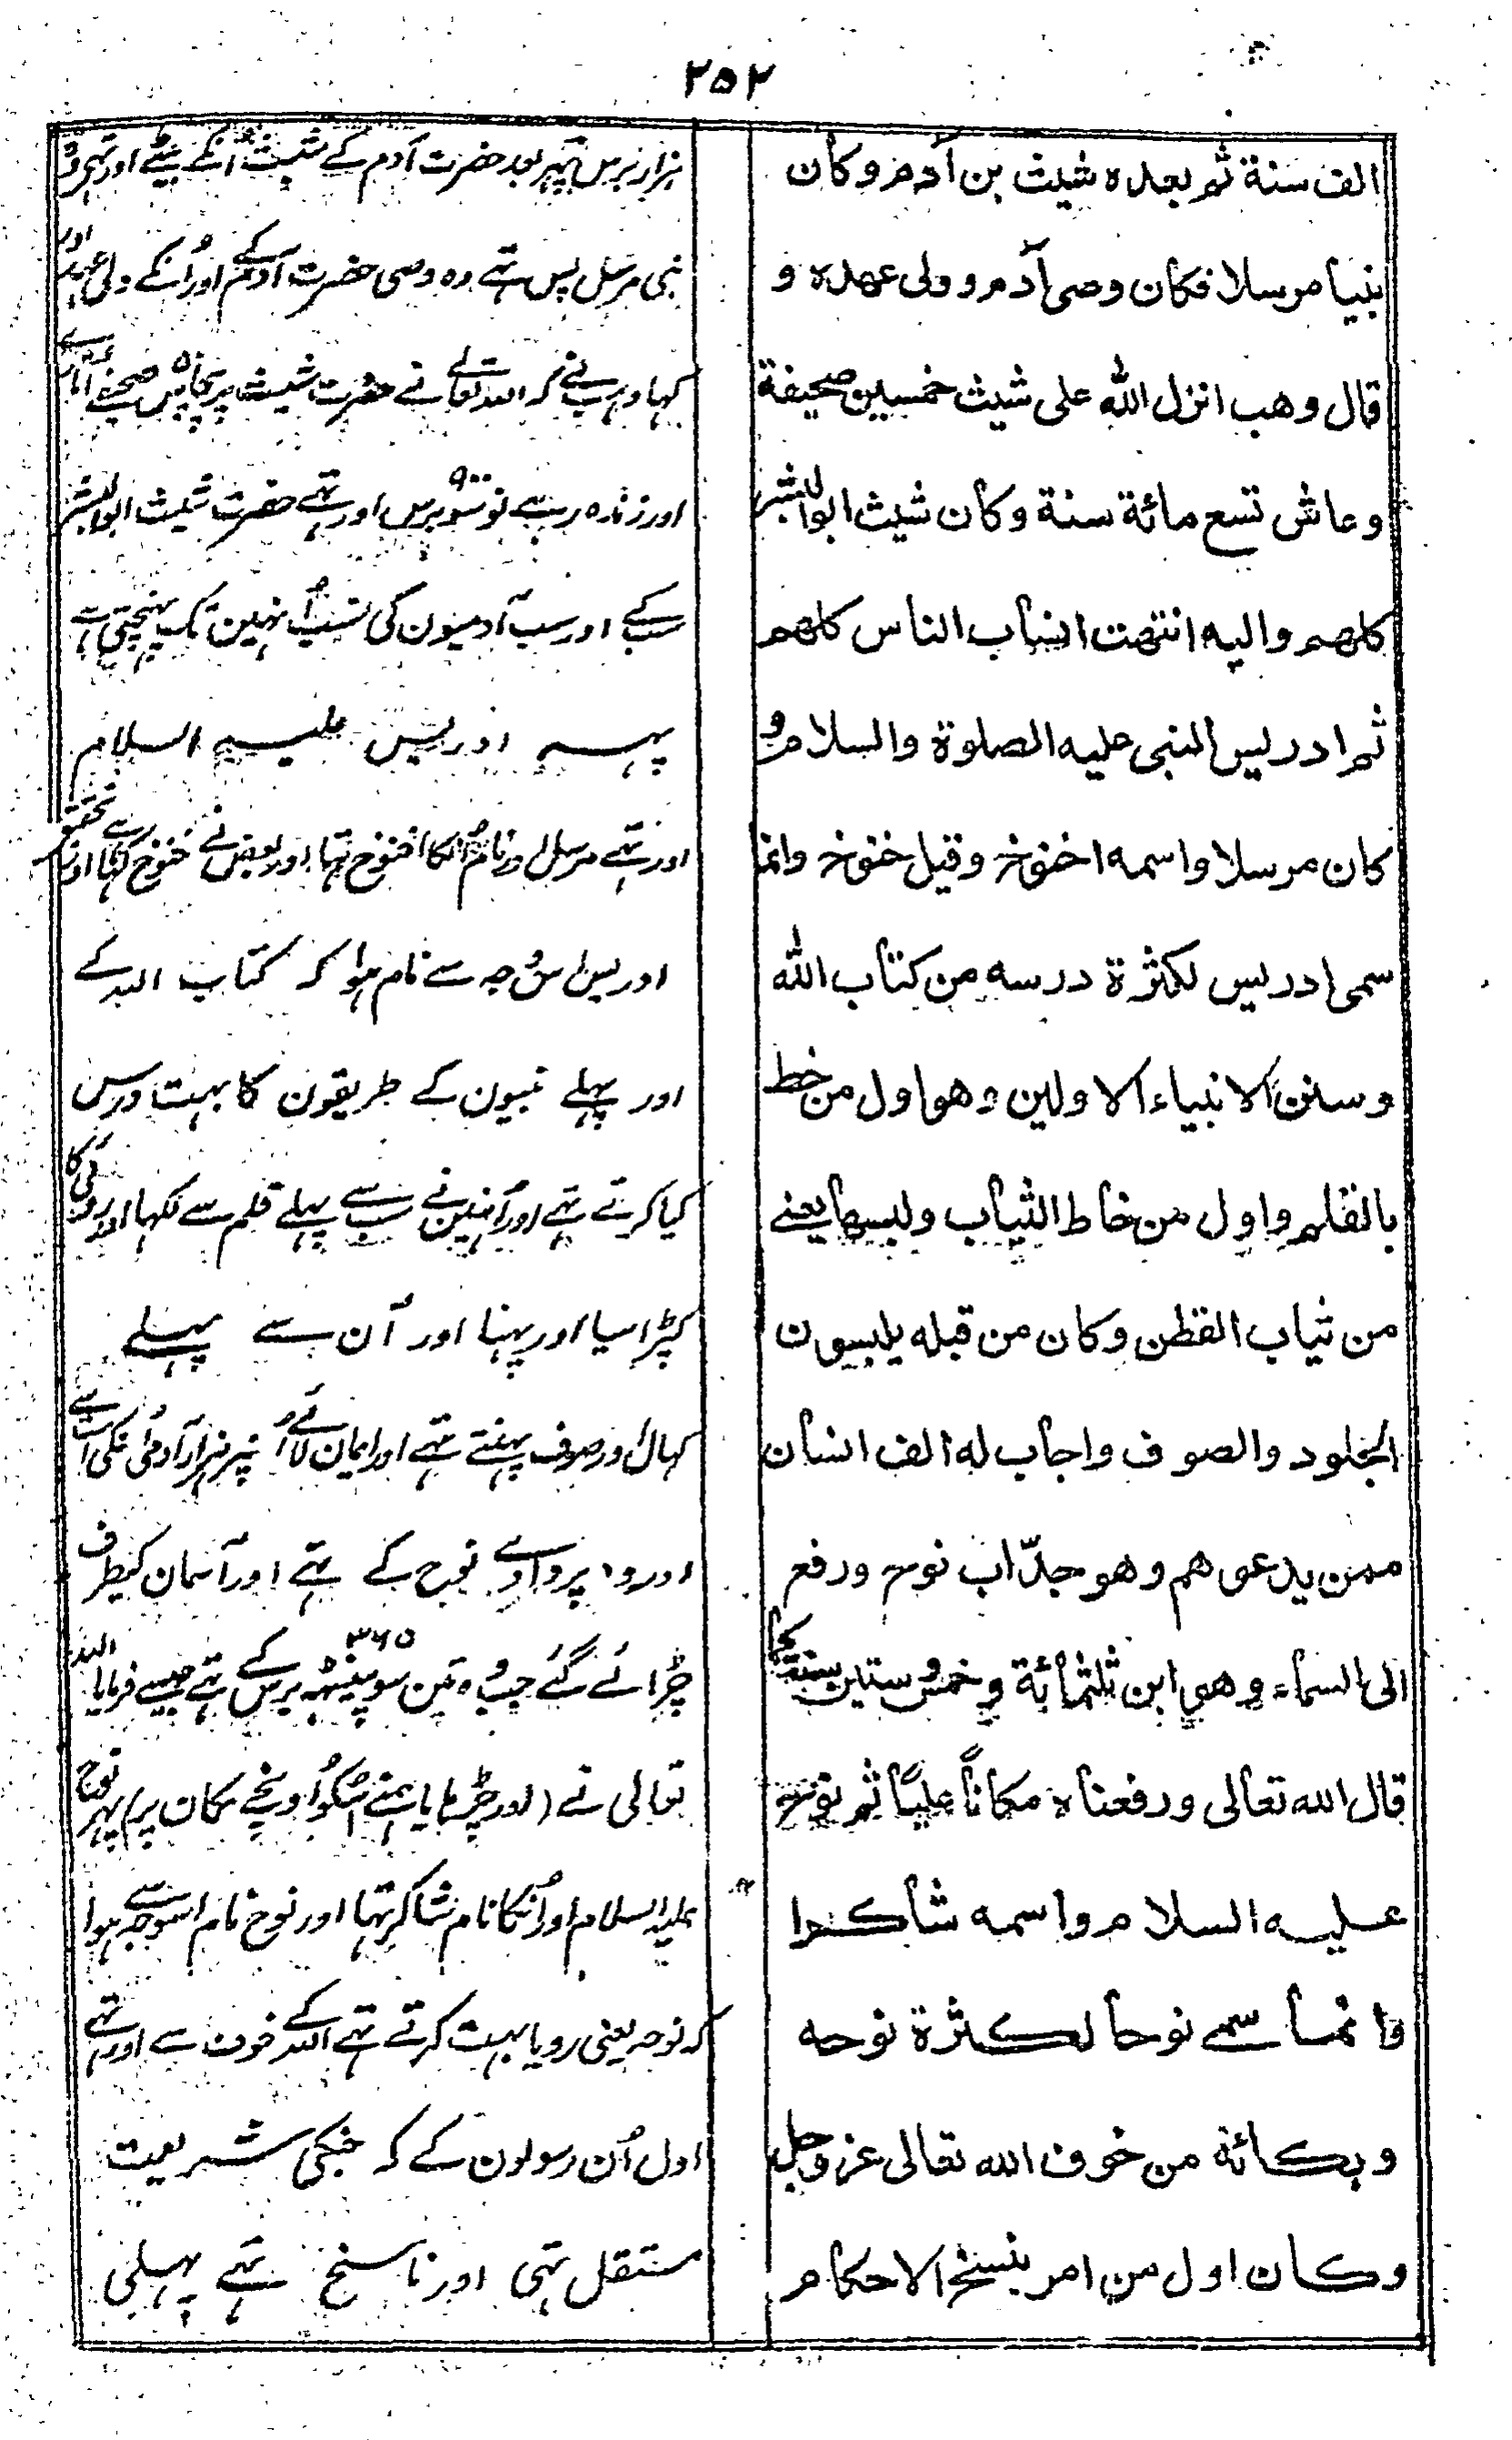 ۲۵۲
الف سنة ثم بعده شیث بن آدم وکان
نبیا مرسلا فکان وصی آدم وولی عهده و
قال وهب انزل الله علی شیث خمسین صحیفة
وعاش تسع مائة سنة وکان شیث ابوالبشر
کلهم والیه انتهت انساب الناس کلهم
ثم ادریس النبی علیه الصلوة والسلام و
کان مرسلا واسمه اخنوخ وقیل خنوخ وانما
سمی ادریس لکثرة درسه من کتاب الله
وسنن الانبیاء الاولین وهو اول من خط
بالقلم واول من خاط الثیاب ولبسها یعنے
من ثیاب القطن وکان من قبله یلبسون
الجلود والصوف واجاب له الف انسان
ممن یدعوهم وهو جدّ اب نوح ورفع
الی السماء وهو ابن ثلثمائة وخمس وستین سنة کما
قال الله تعالی ورفعناه مکاناً علیّاً ثم نوح
علیه السلام واسمه شاکرا
وانما سمے نوحا لکثرة نوحه
وبکائه من خوف الله تعالی عز وجل
وکان اول من امر بنسخ الاحکام
ہزار برس پہر بعد حضرت آدم کے شیث انکے بیٹے اور تہے وہ
نبی مرسل پس تہے وہ وصی حضرت آدم کے اور اُنکے ولی عہد اور
کہا وہب نے کہ اللہ تعالے نے حضرت شیث پر پچاس ۵۰ صحیفے اتارے
اور زندہ رہے نو سو ۹۰۰ برس اور تہے حضرت شیث ابوالبشر
سب کے اور سب آدمیون کی نسب اُنہین تک پہنچتی ہے
پہر ادریس علیہ السلام
اور تہے مرسل اور نام اُنکا اخنوخ تہا اور بعض نے خنوخ کہا ہے اور تحقیق
ادریس اس وجہ سے نام ہوا کہ کتاب اللہ کے
اور پہلے نبیون کے طریقون کا بہت درس
کیا کرتے تہے اور اُنہین نے سب سے پہلے قلم سے لکہا اور روئی کا
کپڑا سیا اور پہنا اور اُن سے پہلے
کہال اور صوف پہنتے تہے اور ایمان لائے اُنپر ہزار آدمی اُنکی امت سے
اور وہ پردادے نوح کے تہے اور آسمان کیطرف
چڑہائے گئے جب وہ تین سو پینسٹہ ۳۶۵ برس کے تہے جیسے فرمایا اللہ
تعالی نے (اور چڑہایا ہمنے اسکو اونچے مکان پر) پہر نوح
علیہ السلام اور اُنکا نام شاکر تہا اور نوح نام اسوجہ سے ہوا
کہ نوحہ یعنی رویا بہت کرتے تہے اللہ کے خوف سے اور تہے
اول اُن رسولون کے کہ جنکی شریعت
مستقل تہی اور ناسخ تہے پہلی